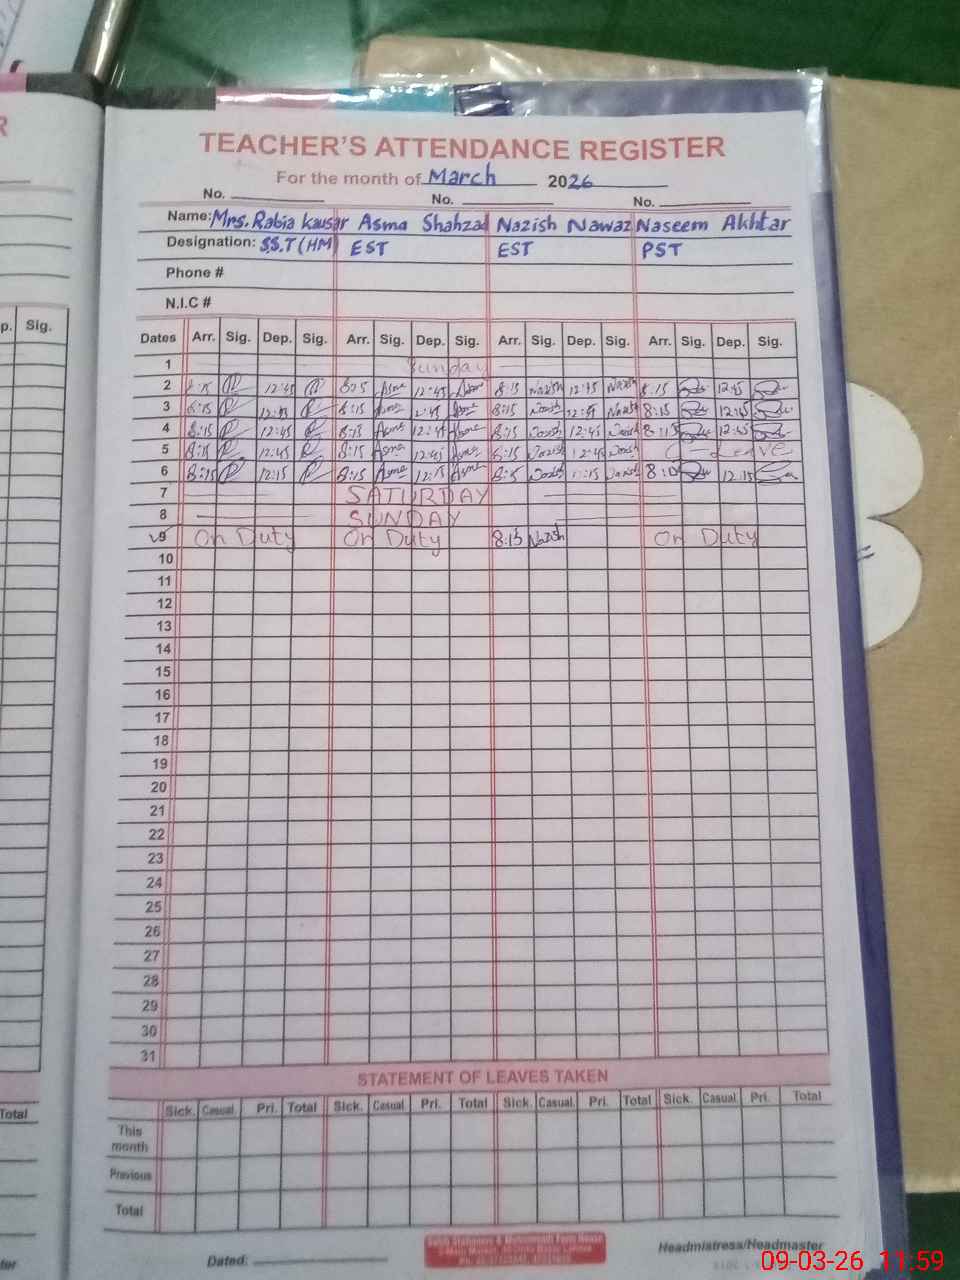 TEACHER'S ATTENDANCE REGISTER
For the month of March 2026
No. No. No.
Name: Mrs. Rabia Kausar Asma Shahzad Nazish Nawaz Naseem Akhtar
Designation: S.S.T (HM) EST EST PST
Phone #
N.I.C #
p. Sig.
Dates Arr. Sig. Dep. Sig. Arr. Sig. Dep. Sig. Arr. Sig. Dep. Sig. Arr. Sig. Dep. Sig.
1 Sunday
2 8:15 12:45 8:15 Asma 12:45 Asma 8:15 Nazish 12:45 Nazish 8:15 12:45
3 8:15 12:45 8:15 Asma 12:45 Asma 8:15 Nazish 12:45 Nazish 8:15 12:45
4 8:15 12:45 8:15 Asma 12:45 Asma 8:15 Nazish 12:45 Nazish 8:15 12:45
5 8:15 12:45 8:15 Asma 12:45 Asma 8:15 Nazish 12:45 Nazish C - Leave
6 8:15 12:15 8:15 Asma 12:15 Asma 8:15 Nazish 12:15 Nazish 8:10 12:15
7 SATURDAY
8 SUNDAY
9 On Duty On Duty 8:15 Nazish On Duty
10
11
12
13
14
15
16
17
18
19
20
21
22
23
24
25
26
27
28
29
30
31
STATEMENT OF LEAVES TAKEN
Total Sick. Casual. Pri. Total Sick. Casual Pri. Total Sick. Casual. Pri. Total Sick. Casual. Pri. Total
This month
Previous
Total
Dated: Headmistress/Headmaster
09-03-26 11:59